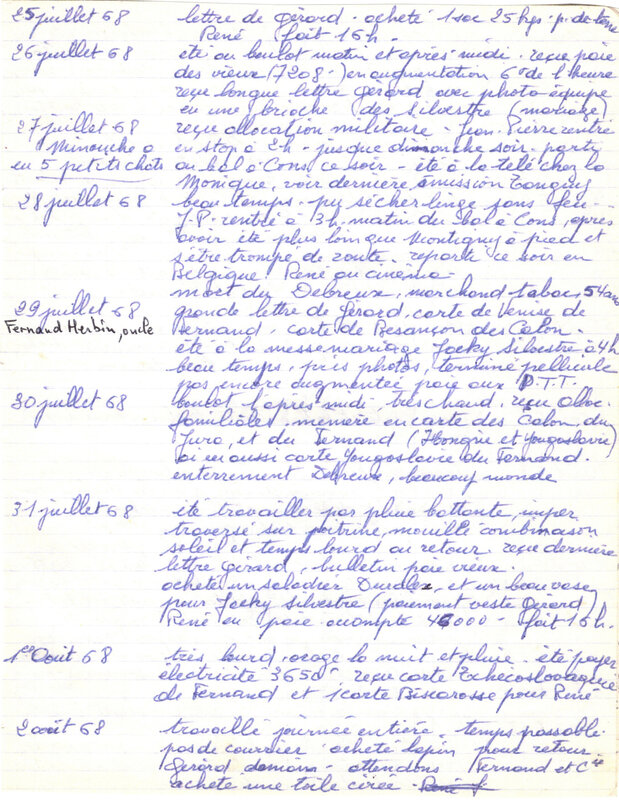 25 juillet 68 lettre de Gérard - acheté 1 sac 25 kgs p. de terre
René fait 16h -
26 juillet 68 été au boulot matin et après-midi - reçu paie
des vieux (7208-) en augmentation 6º de l'heure
reçu longue lettre Gérard avec photo équipe
eu une brioche (des Silvestre (mariage)
27 juillet 68 reçu allocation militaire - Jean-Pierre rentré
Minouche a en stop à 2h - jusque dimanche soir - parti
eu 5 petits chats au bal à Cons ce soir - été à la télé chez la
Monique, voir dernière émission Tanguy
28 juillet 68 beau temps - pu sécher linge sans feu -
J.P. rentré à 3h. matin du bal à Cons, après
avoir été plus loin que Montigny à pied et
s'être trompé de route - reparti ce soir en
Belgique. René au cinéma -
29 juillet 68 mort du Debreux, marchand tabac, 54 ans
Fernand Herbin, oncle grande lettre de Gérard, carte de Venise de
Fernand, carte de Besançon des Colon -
été à la messe mariage Jacky Silvestre à 4h
beau temps, pris photos, terminé pellicule
pas encore augmentée paie aux P.T.T.
30 juillet 68 boulot l'après-midi, très chaud, reçu alloc.
familiales, mémère eu carte des Colon, du
Jura, et du Fernand (Hongrie et Yougoslavie)
ai eu aussi carte Yougoslavie du Fernand -
enterrement Debreux, beaucoup monde
31 juillet 68 été travailler par pluie battante, imper
traversé sur poitrine, mouillé combinaison
soleil et temps lourd au retour - reçu dernière
lettre Gérard, bulletin paie vieux -
acheté un saladier Duralex, et un beau vase
pour Jacky Silvestre (paiement veste Gérard)
René eu paie acompte 46000 - fait 16h.
1er Août 68 très lourd, orage la nuit et pluie - été payer
électricité 3650, reçu carte Tchécoslovaquie
de Fernand et 1 carte Biscarosse pour René
2 août 68 travaillé journée entière - temps passable
pas de courrier - acheté lapin pour retour
Gérard demain - attendons Fernand et Cie
acheté une toile cirée -